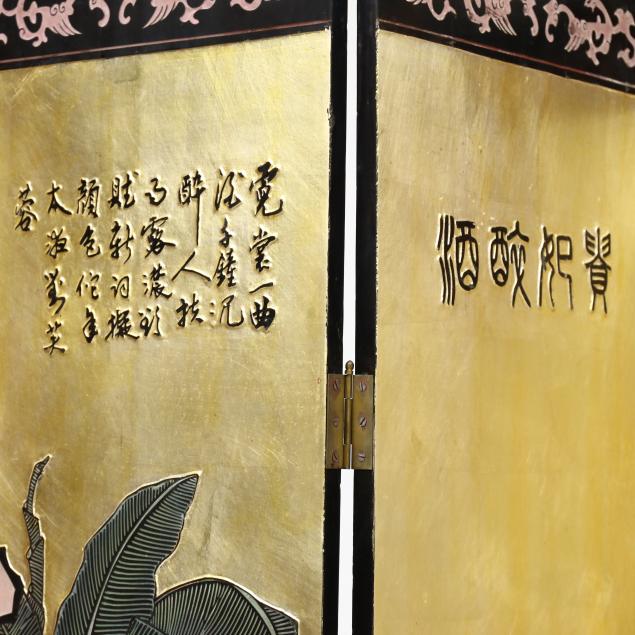 霓裳一曲
酒千鍾沉
醉人扶
露濃欲
賦新詞擬
顏色何年
太液對芙
蓉
貴妃醉酒